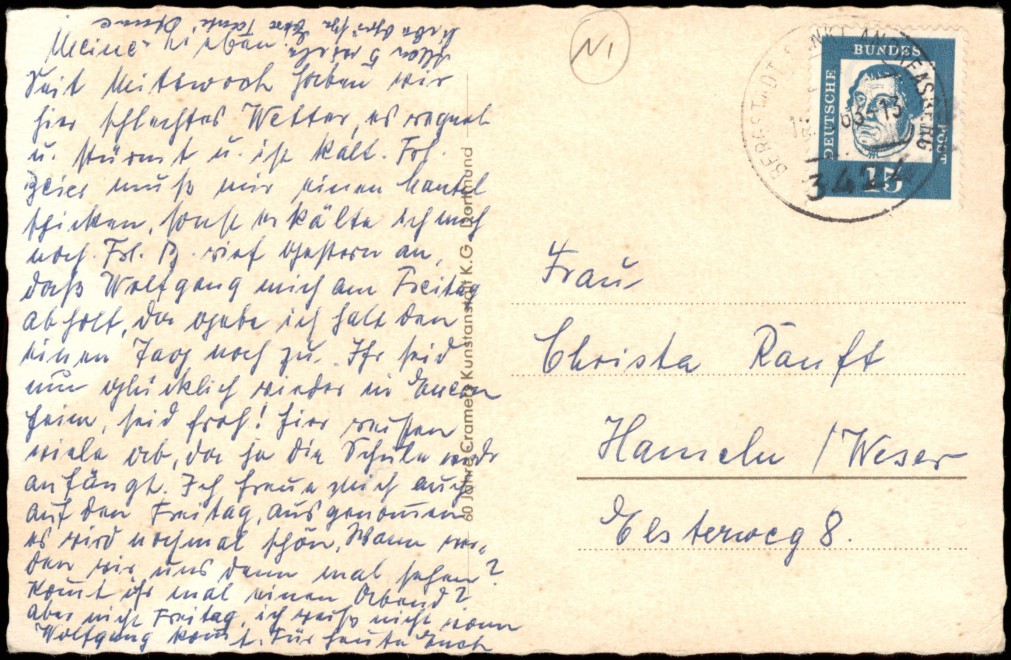 Meine Lieben!
Seit Mittwoch haben wir
hier schlechtes Wetter, es regnet
u. stürmt u. ist kalt. Frl.
muß mir einen Mantel
schicken, sonst erkälte ich mich
noch. Frl. B. rief gestern an,
daß Wolfgang mich am Freitag
abholt, da gebe ich halt den
einen Tag noch zu. Ihr seid
nun glücklich wieder in Eurem
Heim, seid froh! Hier reisen
viele ab, da ja die Schule
anfängt. Ich freue mich auch
auf den Freitag, ausgenommen
es wird nochmal schön. Wann wer-
den wir uns denn mal sehen?
Kommt ihr mal einen Abend?
aber nicht Freitag, ich weiß nicht wann
Wolfgang kommt. Für heute Euch
Allen 5 viele
liebe Grüße Ihre Tante
60 Jahre Cramers Kunstanstalt K.G. Dortmund
N1
BERGSTADT SANKT ANDREASBERG
63-13
3424
DEUTSCHE BUNDESPOST
15
Frau
Christa Ranft
Hameln / Weser
Elsterweg 8.